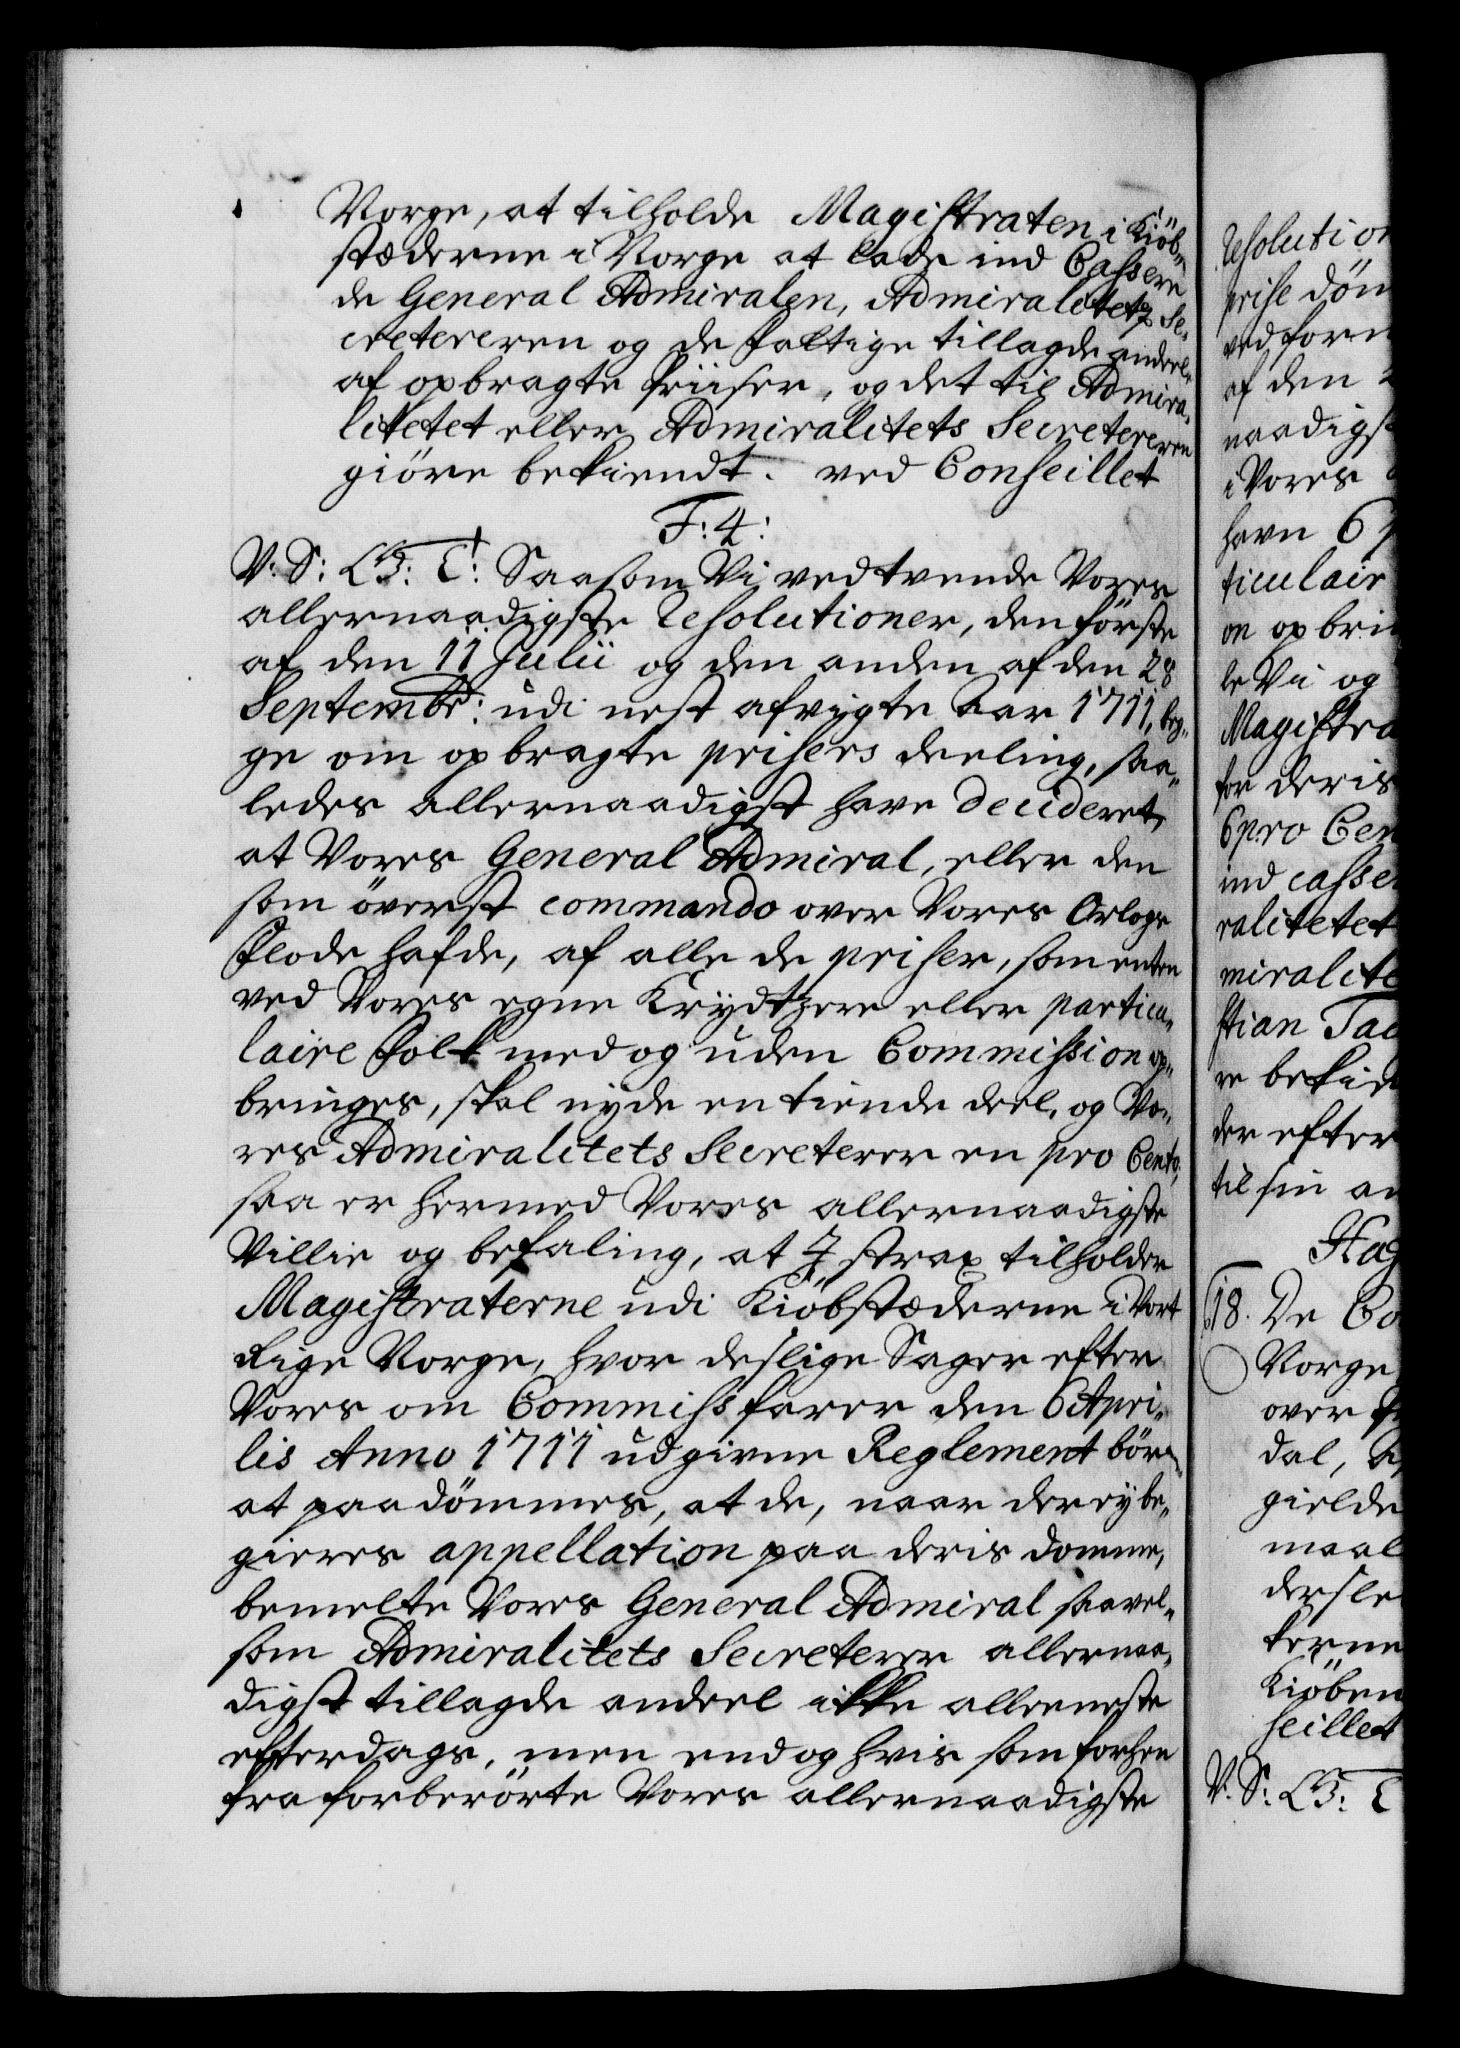 Norge, at tilholde Magistraten i Kiöb„
stæderne i Norge at lade ind Cassere
de General Admiralen, Admiralitetz Se„
cretereren og de fattige tillagde andeele
af opbragte Priiser, og det til Admira„
litetet eller Admiralitets Secretereren
giöre bekiendt. ved Conseillet
F: 4:
V: S: G: T: Saasom Vi ved tvende Vores
allernaadigste Resolutioner, den förste
af den 11 Julii og den anden af den 28
Septembr: udi nest afvigte Aar 1711, beg„
ge om opbragte prisers deeling, saa„
ledes allernaadigst have decideret,
at Vores General Admiral, eller den
som överst commando over Vores Orlogs
Flode hafde, af alle de priser, som enten
ved Vores egne Krydtzere eller particu„
laire Folk med og uden Commission op„
bringes, skal nyde en tiende deel, og Vo„
res Admiralitets Secreterer en pro Cento,
saa er hermed Vores allernaadigste
Villie og befaling, at I strax tilholder
Magistraterne udi Kiöbstæderne i Vort
Rige Norge, hvor deslige Sager efter
Vores om Commiss farer den 6 Apri„
lis Anno 1711 udgivne Reglement bör
at paadömmes, at de, naar der ey be„
gieres appellation paa deris domme,
bemelte Vores General Admiral saavel„
som Admiralitets Secreterer allernaa„
digst tillagde andeel ikke alleeneste
efterdags, men endog hvis som forhen
fra forberörte Vores allernaadigste
Resolution
prise döm
ved form
af den
naadigst
i Vores
havn 6
ticulair
on opbri
le Vii og
Magistra
for deris
6 pro Cen
ind casse
ralitetet
miralite
stian
re bekie
der efter
til sin
Hag
18. De Co
Norge
over
dal,
gielde
maal
dersle
kerne
Kiöben
seillet
V: S: G: T